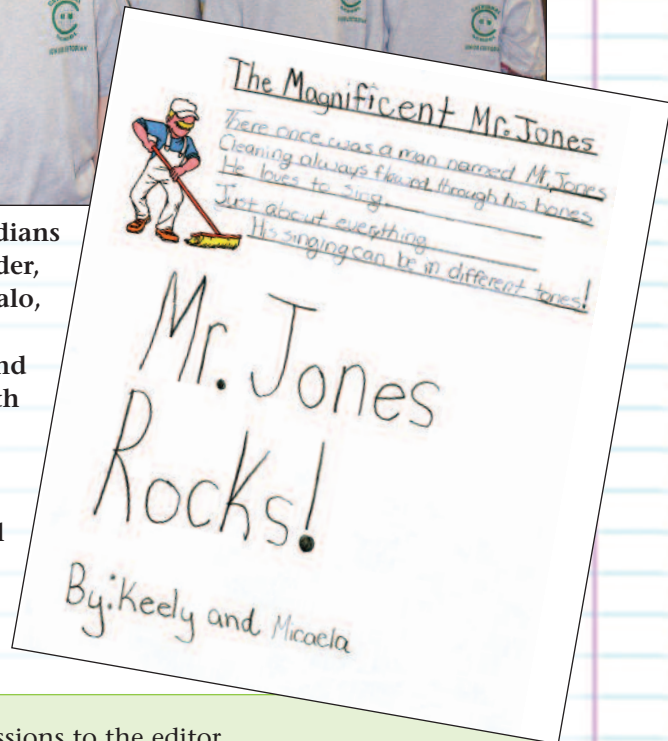 dians
der,
alo,
nd
th
l
The Magnificent Mr. Jones
There once was a man named Mr. Jones
Cleaning always flowed through his bones
He loves to sing
Just about everything
His singing can be in different tones!
Mr. Jones
Rocks!
By: Keely and Micaela
ssions to the editor